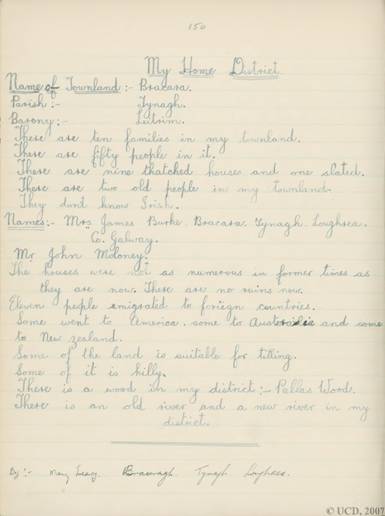 150
My Home District
Name of Townland :- Bracara.
Parish :- Tynagh.
Barony :- Leitrim.
There are ten families in my townland.
There are fifty people in it.
There are nine thatched houses and one slated.
There are two old people in my townland.
They don't know Irish.
Names :- Mrs James Burke Bracara Tynagh Loughrea
Co. Galway.
Mr John Moloney.
The houses were not as numerous in former times as
they are now. There are no ruins now.
Eleven people emigrated to foreign countries.
Some went to America, some to and some
to New zealand.
Some of the land is suitable for tilling.
Some of it is hilly.
There is a wood in my district :- Pallas Wood.
There is an old river and a new river in my
district.
By :- Tynagh
© UCD, 2007